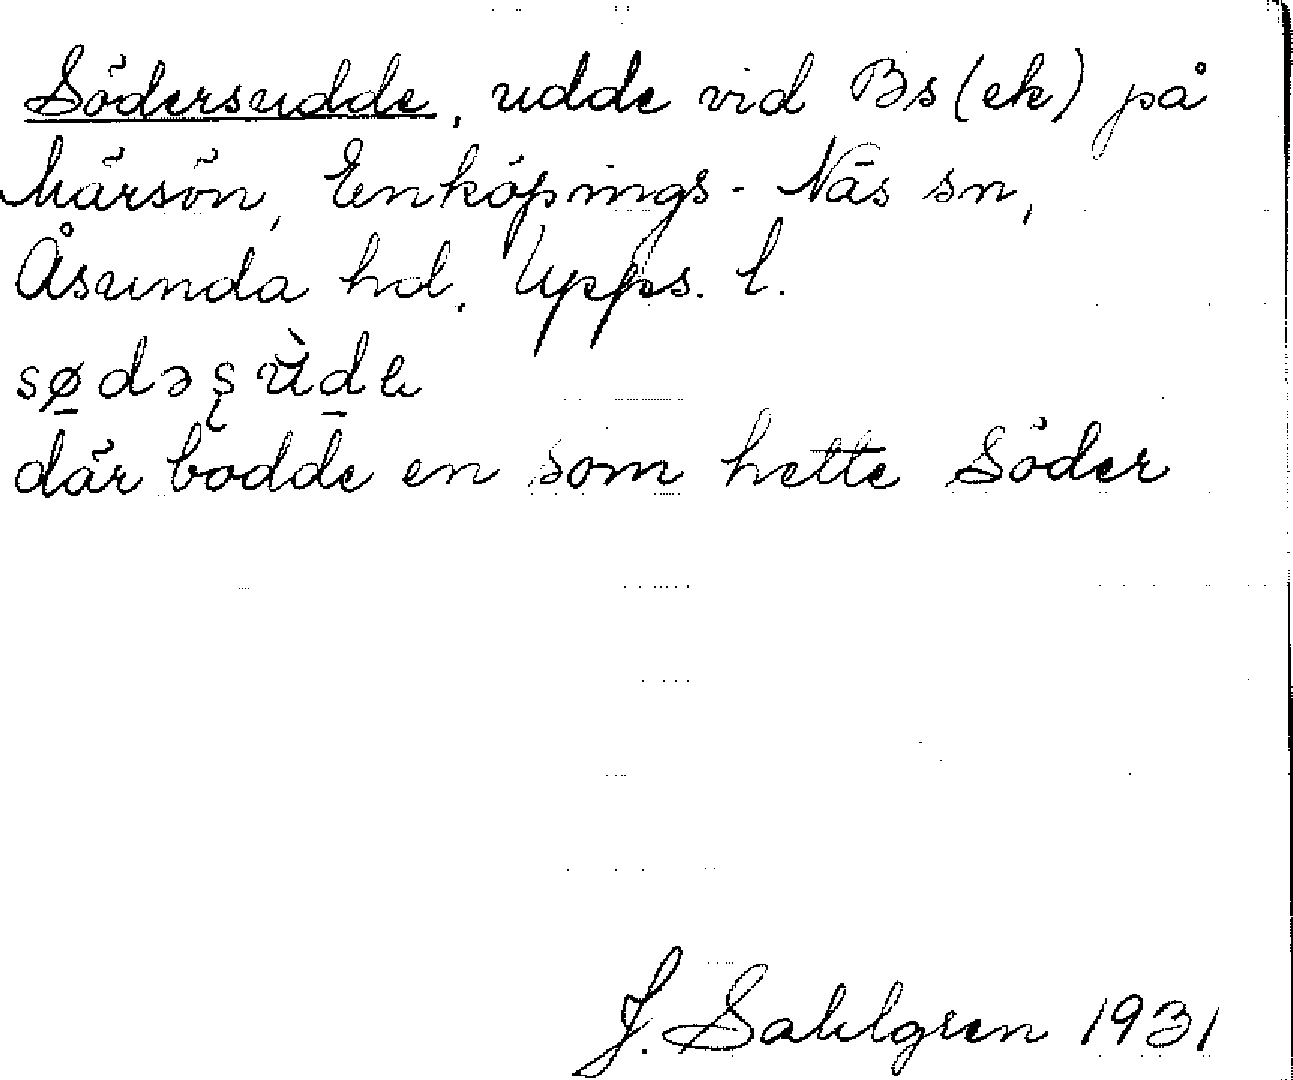 Södersudde, udde vid Bs (ek) på
Märsön, Enköpings-Näs sn,
Åsunda hd, Upps. l.
sø̱dəʂùḏe
där bodde en som hette Söder
J. Sahlgren 1931